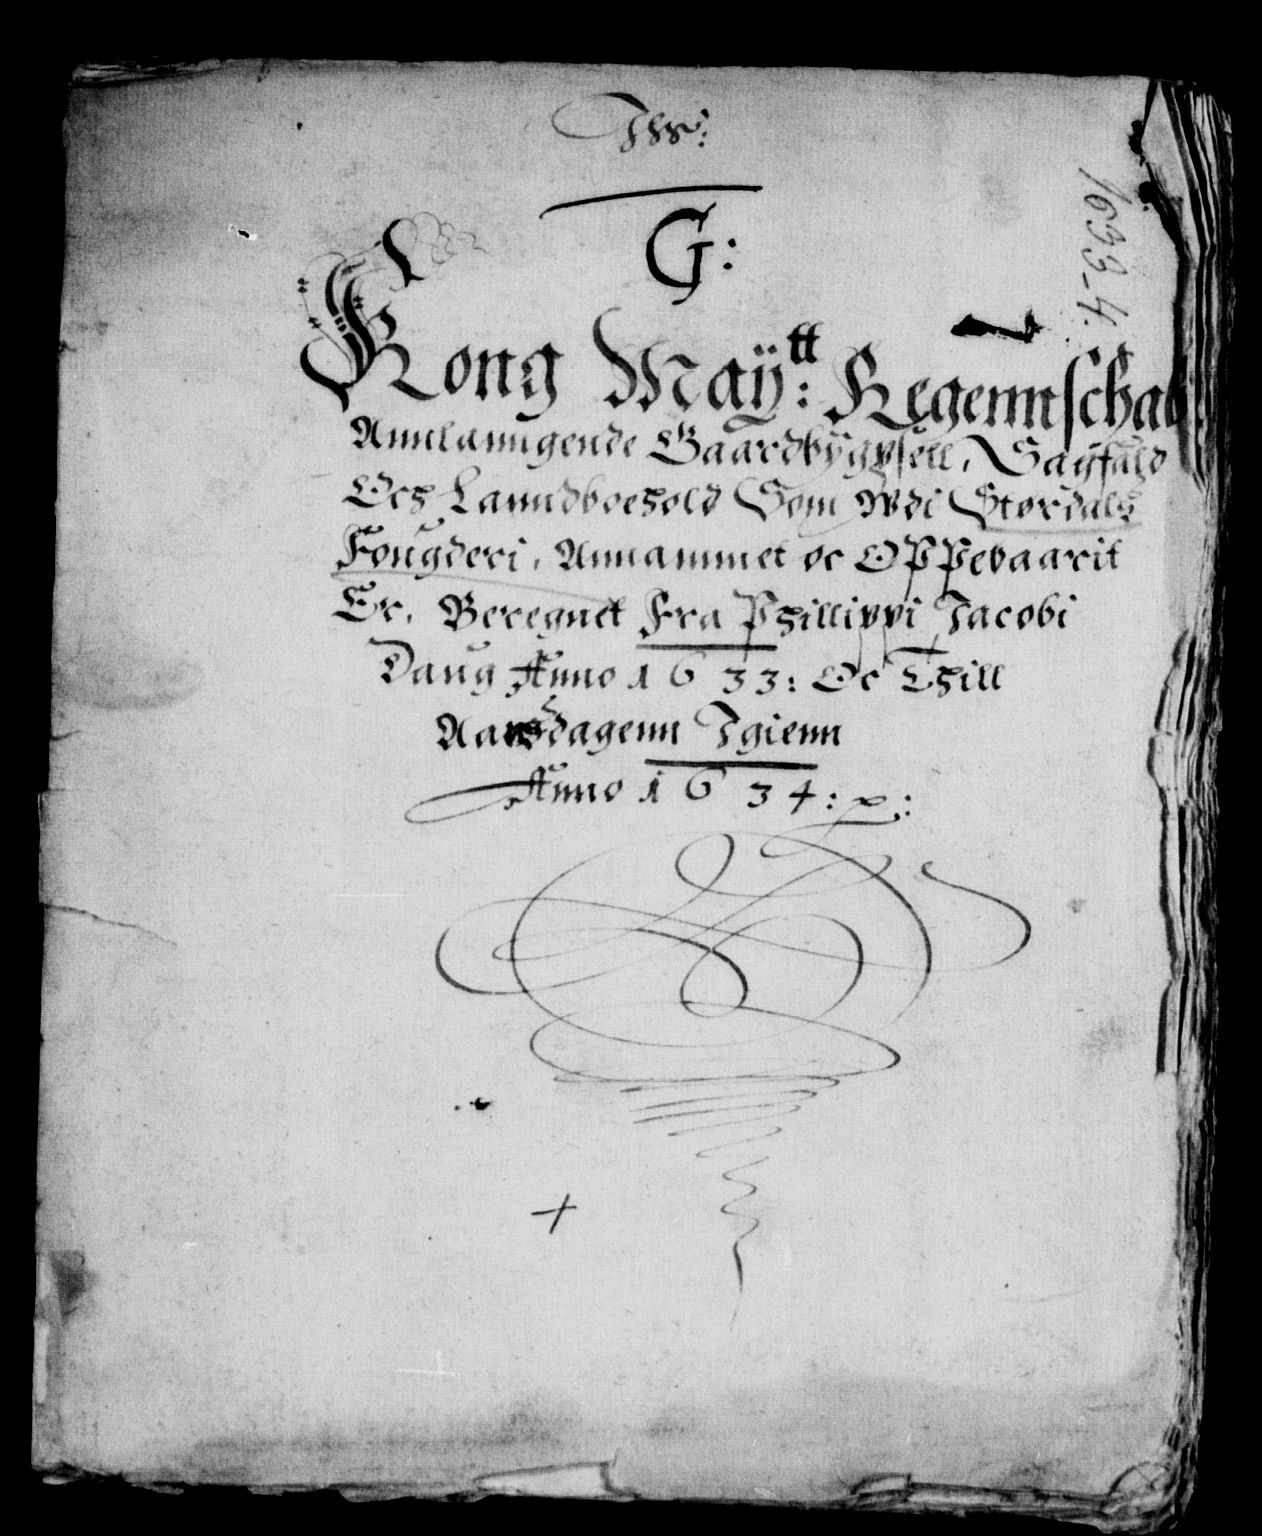 G:
1633-4.
Kong May:tt Regennschab
Annlanngende Gaardbÿgpsell, Sagfald
Och Lanndboehold Som Wdi Stordals
Fougderi, Annammet oc Oppebaarit
Er, Beregnet Fra Phillippi Jacobi
Daug Anno 1633: Oc Thill
Aarsdagenn Igienn
Anno 1634: